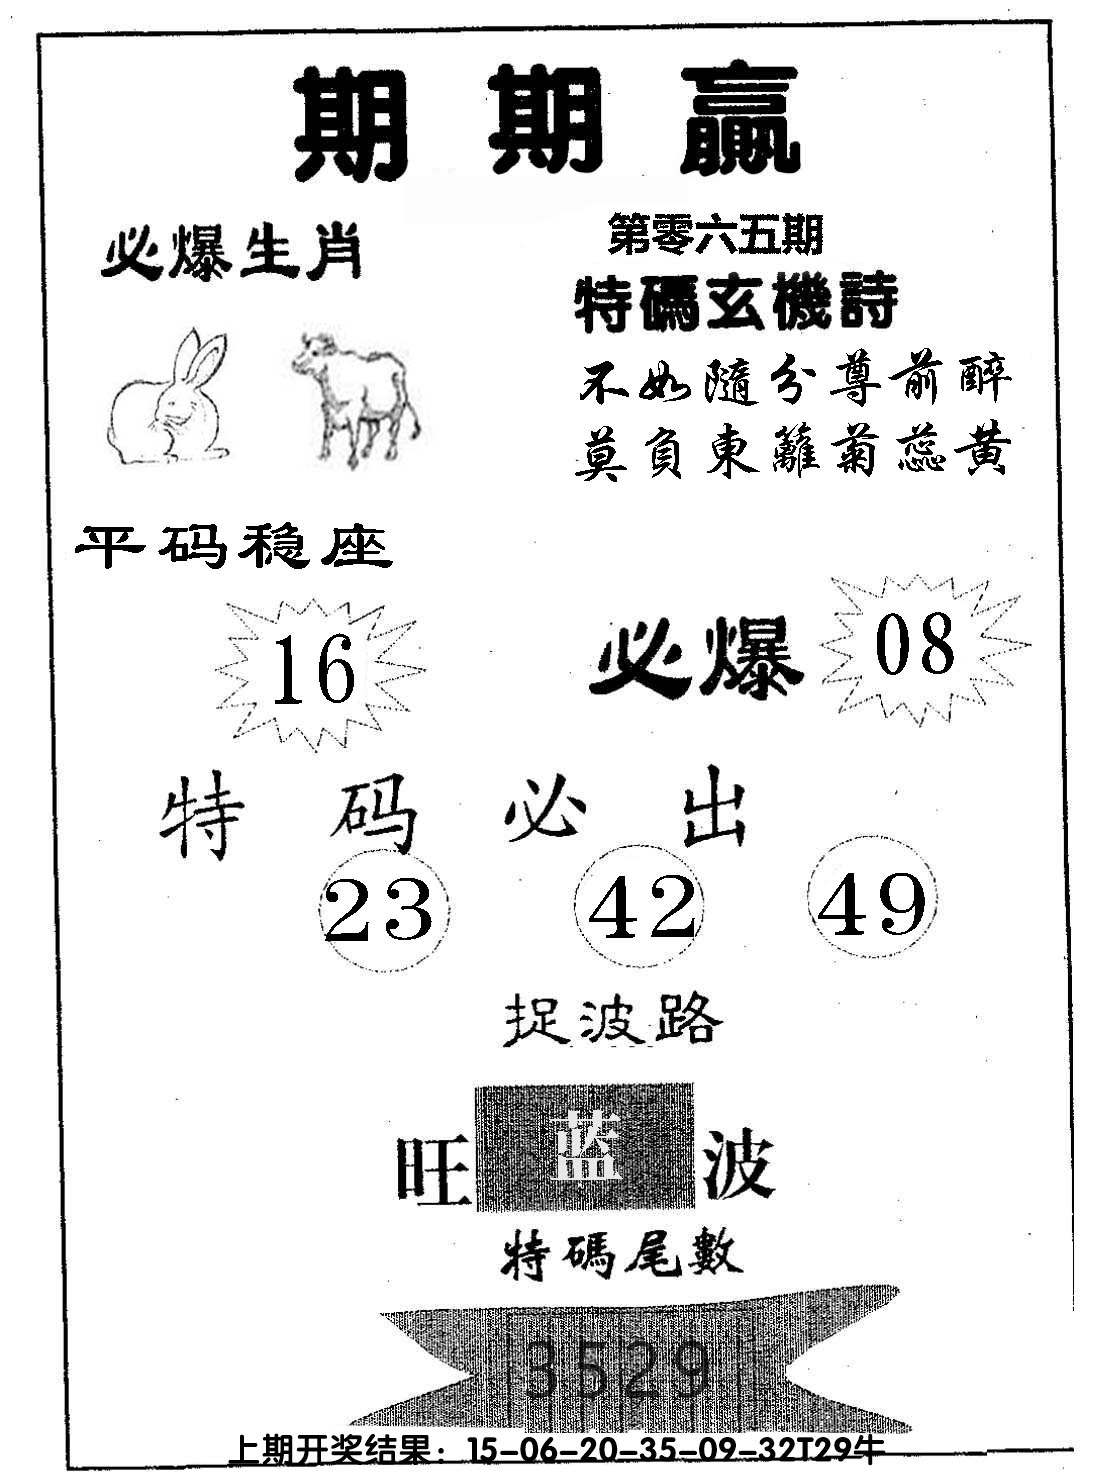 期期赢
必爆生肖
第零六五期
特碼玄機詩
不如隨分尊前醉
莫負東籬菊蕊黄
平码稳座
16
必爆
08
特码必出
23 42 49
捉波路
旺蓝波
特碼尾數
3529
上期开奖结果：15-06-20-35-09-32T29牛